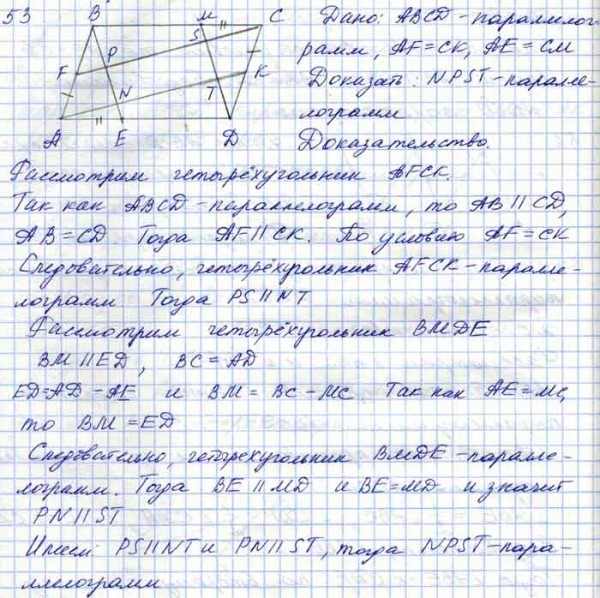 53
B M C
Дано: ABCD - параллелог-
рамм, AF=CK, AE=CM
Доказать: NPST - паралле-
лограмм
Доказательство.
F P S K
N T
A E D
Рассмотрим четырёхугольник AFCK.
Так как ABCD - параллелограмм, то AB || CD,
AB = CD Тогда AF || CK. По условию AF = CK
Следовательно, четырёхугольник AFCK - паралле-
лограмм Тогда PS || NT
Рассмотрим четырёхугольник BMDE
BM || ED, BC = AD
ED=AD - AE и BM = BC - MC Так как AE = MC,
то BM = ED
Следовательно, четырехугольник BMDE - паралле-
лограмм. Тогда BE || MD и BE = MD и значит
PN || ST
Имеем PS || NT и PN || ST, тогда NPST - пара-
ллелограмм